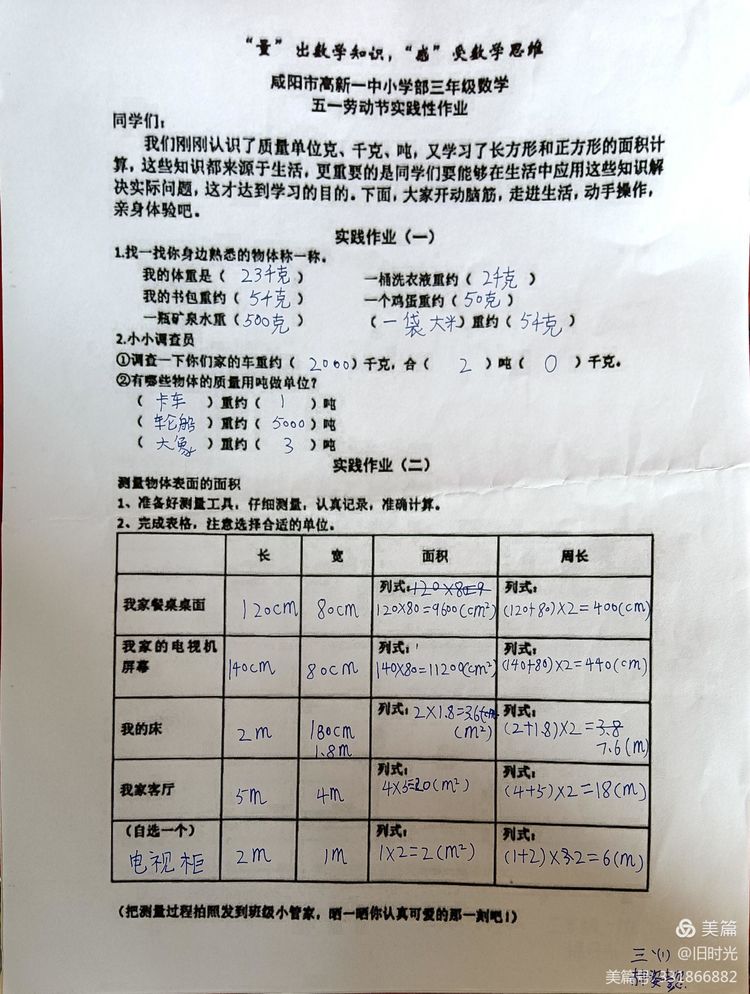 “量”出数学知识，“感”受数学思维
咸阳市高新一中小学部三年级数学
五一劳动节实践性作业
同学们：
我们刚刚认识了质量单位克、千克、吨，又学习了长方形和正方形的面积计
算，这些知识都来源于生活，更重要的是同学们要能够在生活中应用这些知识解
决实际问题，这才达到学习的目的。下面，大家开动脑筋，走进生活，动手操作，
亲身体验吧。
实践作业（一）
1.找一找你身边熟悉的物体称一称。
我的体重是（ 23千克 ） 一桶洗衣液重约（ 2千克 ）
我的书包重约（ 5千克 ） 一个鸡蛋重约（ 50克 ）
一瓶矿泉水重（ 500克 ） （ 一袋大米 ）重约（ 5千克 ）
2.小小调查员
①调查一下你们家的车重约（ 2000 ）千克，合（ 2 ）吨（ 0 ）千克。
②有哪些物体的质量用吨做单位？
（ 卡车 ）重约（ 1 ）吨
（ 轮船 ）重约（ 5000 ）吨
（ 大象 ）重约（ 3 ）吨
实践作业（二）
测量物体表面的面积
1、准备好测量工具，仔细测量，认真记录，准确计算。
2、完成表格，注意选择合适的单位。
长 宽 面积 周长
我家餐桌桌面 120cm 80cm 列式：120×80=9 120×80=9600(cm²) 列式：(120+80)×2=400(cm)
我家的电视机屏幕 140cm 80cm 列式：140×80=11200(cm²) 列式：(140+80)×2=440(cm)
我的床 2m 180cm 1.8m 列式：2×1.8=3.6(m²) 列式：(2+1.8)×2=3.8 7.6(m)
我家客厅 5m 4m 列式：4×5=20(m²) 列式：(4+5)×2=18(m)
（自选一个）电视柜 2m 1m 列式：1×2=2(m²) 列式：(1+2)×2=6(m)
（把测量过程拍照发到班级小管家，晒一晒你认真可爱的那一刻吧！）
美篇
@旧时光
三(1)